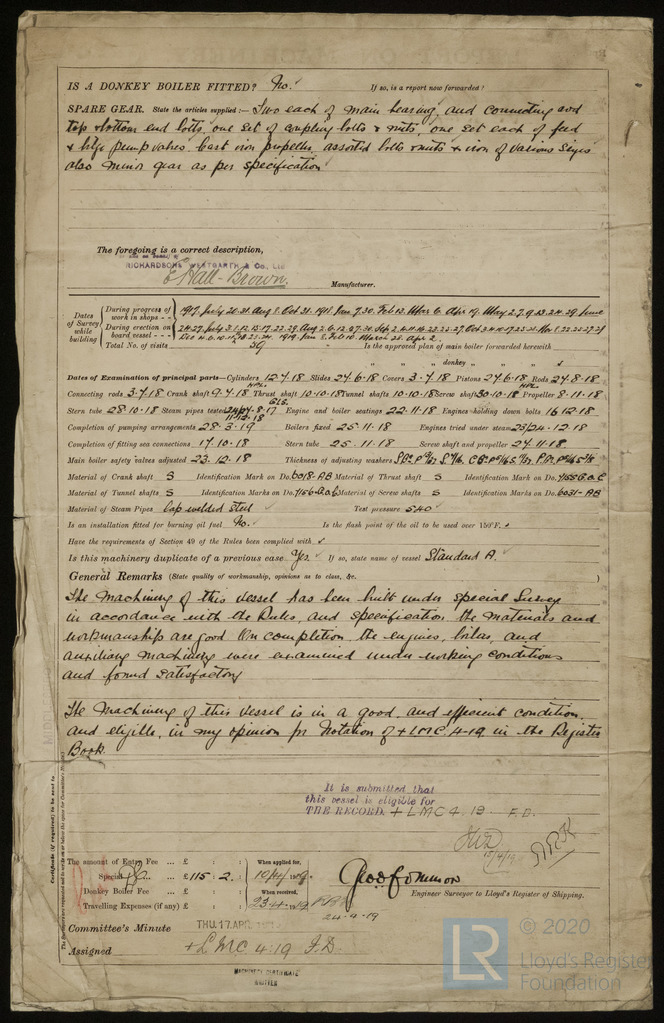 IS A DONKEY BOILER FITTED? No. If so, is a report now forwarded?
SPARE GEAR. State the articles supplied:— Two each of main bearing, and connecting rod
top & bottom end bolts, one set of coupling bolts & nuts, one set each of feed
& bilge pump valves cast iron propeller assorted bolts & nuts & iron of various sizes
also minor gear as per specification
The foregoing is a correct description,
RICHARDSONS WESTGARTH & Co., Ltd
E Hall-Brown. Manufacturer.
Dates of Survey while building
During progress of work in shops - - 1917. July 20.31. Aug 8. Oct 31. 1918. Jan 7.30. Feb 12. Mar 6. Apr 19. May 2.7.9.13.24.29. June
During erection on board vessel - - 24.27. July
1919. Jan 8. Feb 10. March 28. Apr 2.
Total No. of visits 59 Is the approved plan of main boiler forwarded herewith
" " " donkey " " "
Dates of Examination of principal parts—Cylinders 12.7.18 Slides 27.6.18 Covers 3.7.18 Pistons 27.6.18 Rods 27.8.18
Connecting rods 3.7.18 Crank shaft 9.7.18 Thrust shaft 10.10.18 Tunnel shafts 10.10.18 Screw shaft 30.10.18 Propeller 8.11.18
Stern tube 28.10.18 Steam pipes tested 11.12.18 Engine and boiler seatings 22.11.18 Engines holding down bolts 16.12.18
Completion of pumping arrangements 28.3.19 Boilers fixed 25.11.18 Engines tried under steam 23/24.12.18
Completion of fitting sea connections 17.10.18 Stern tube 25.11.18 Screw shaft and propeller 27.11.18
Main boiler safety valves adjusted 23.12.18 Thickness of adjusting washers
Material of Crank shaft S Identification Mark on Do. 6018-AB Material of Thrust shaft S Identification Mark on Do. 7155 G.O.C
Material of Tunnel shafts S Identification Marks on Do. 7156.G.O.C Material of Screw shafts S Identification Marks on Do. 6031-AB
Material of Steam Pipes Lap welded steel Test pressure 540
Is an installation fitted for burning oil fuel No. Is the flash point of the oil to be used over 150°F.
Have the requirements of Section 49 of the Rules been complied with
Is this machinery duplicate of a previous case Yes If so, state name of vessel Standard A.
General Remarks (State quality of workmanship, opinions as to class, &c. )
The machinery of this vessel has been built under special survey
in accordance with the Rules, and specification the materials and
workmanship are good On completion the engines, boilers, and
auxiliary machinery were examined under working conditions
and found satisfactory
The machinery of this vessel is in a good and efficient condition
and eligible, in my opinion for Notation of + LMC 4-19 in the Register
Book.
It is submitted that
this vessel is eligible for
THE RECORD. + LMC 4.19 F.D.
15/4/19
Certificate (if required) to be sent to
The amount of Entry Fee ... £ : : When applied for,
Special ... £ 115 . 2 . : 10/4/1919.
Donkey Boiler Fee ... £ : : When received,
Travelling Expenses (if any) £ : : 23.4.1919
24.4.19
Engineer Surveyor to Lloyd's Register of Shipping.
Committee's Minute THU. 17 APR. 1919
Assigned + LMC 4.19 F.D.
MACHINERY CERTIFICATE
WRITTEN
LR © 2020
Lloyd's Register
Foundation